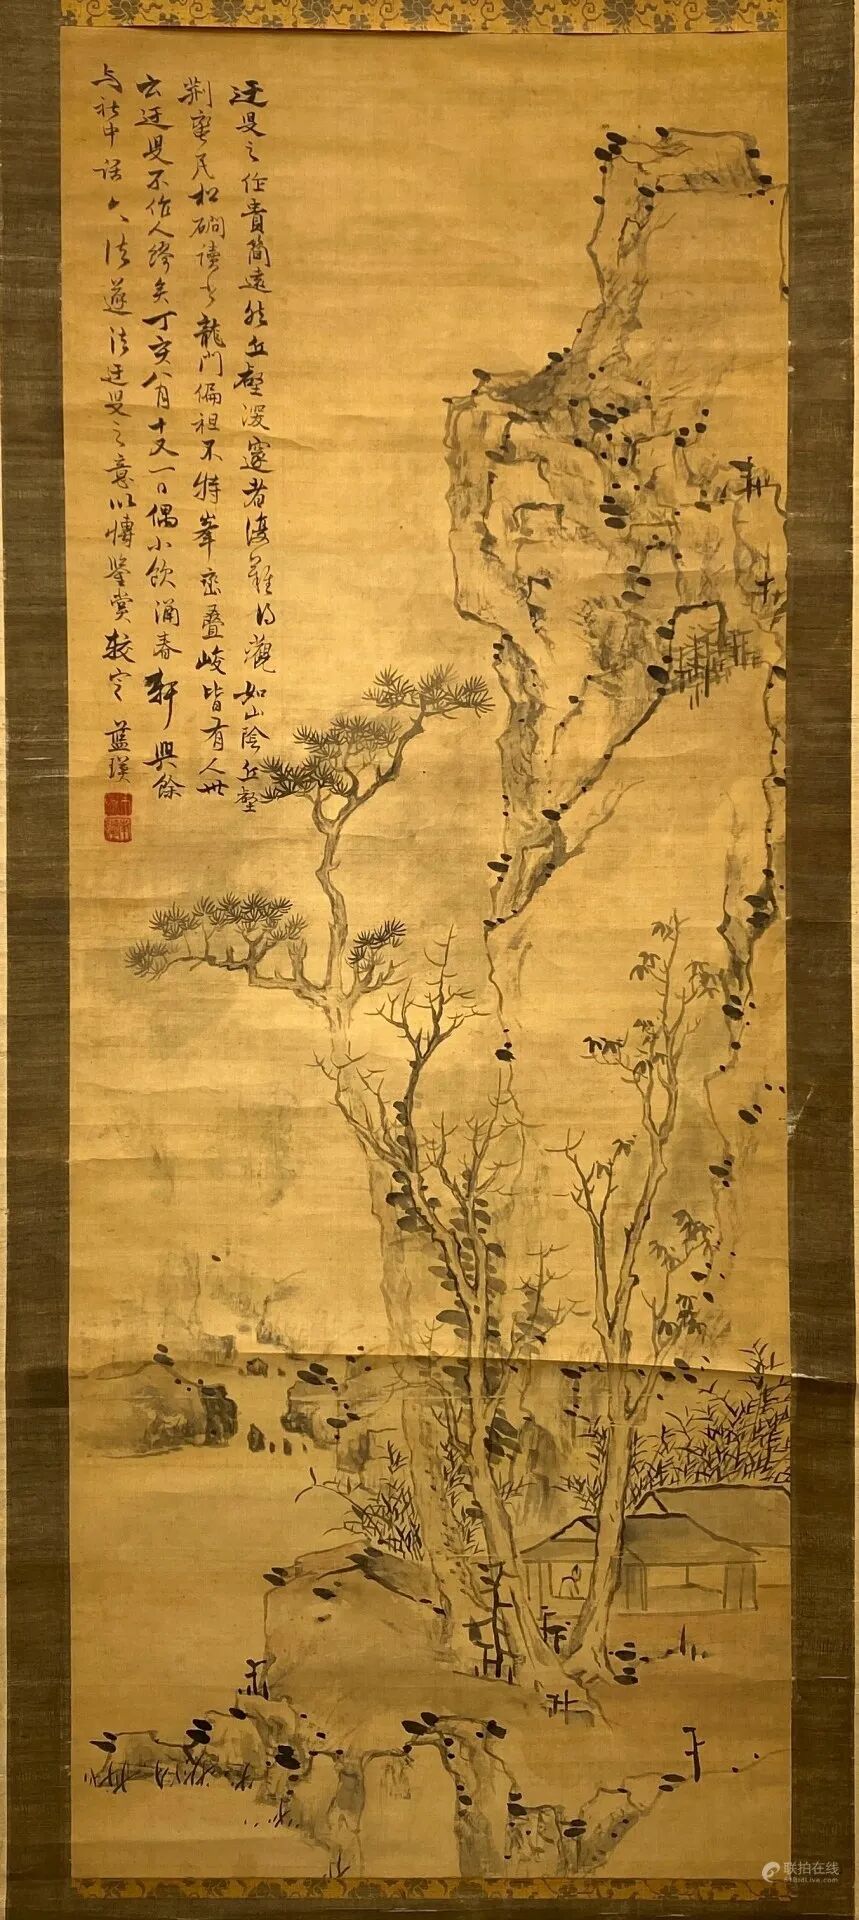 迂叟之作貴簡遠然丘壑深邃者復難得觀如山陰丘壑
荆蛮民松磵讀書龍門偏祖不特峯巒叠峻皆有人世
云迂叟不作人絳矣丁亥八月十又一日偶小飲涌春軒與餘
与社中話六法遂法迂叟之意以博鑒賞較定藍瑛
联拍在线
51BidLive.com